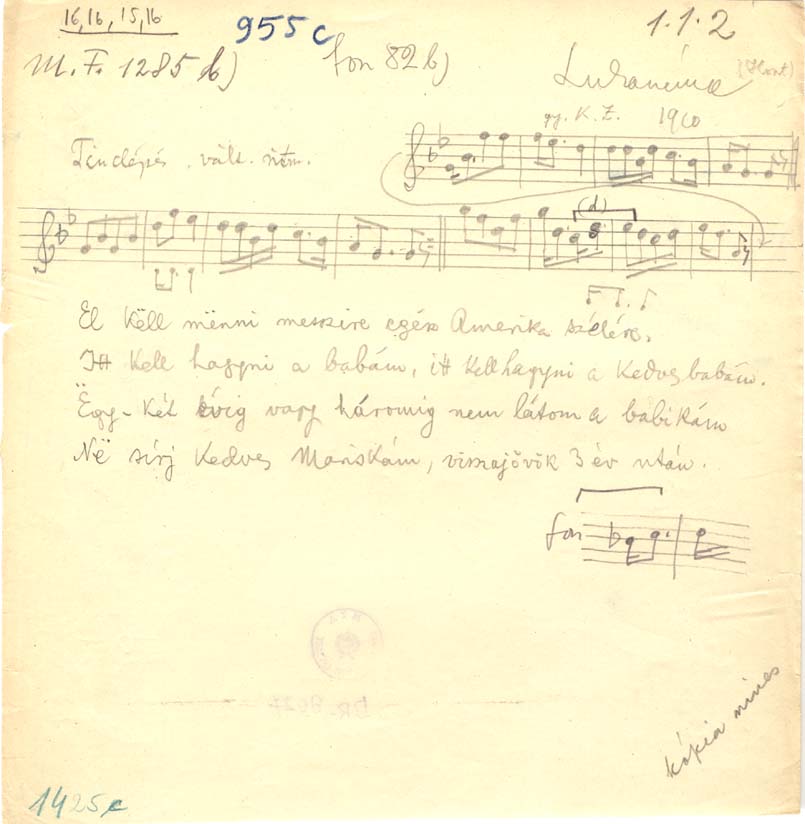 16, 16, 15, 16
955 c
1.1.2
M.F. 1285 b)
fon 82 b)
(Hont)
gy. K. Z. 1910
vált.
(d)
El këll mënni messzire egész Amerika szélére,
Itt kell hagyni a babám, itt kell hagyni a kedves babám.
Ëgy-két évig vagy háromig nem látom a babikám
Në sírj kedves Mariskám, visszajövök 3 év után.
fon
kópia nincs
1425 c